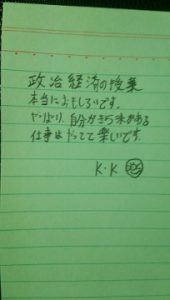 政治経済の授業
本当におもしろいです。
やっぱり、自分がきょう味ある
仕事はやってて楽しいです。
K.K